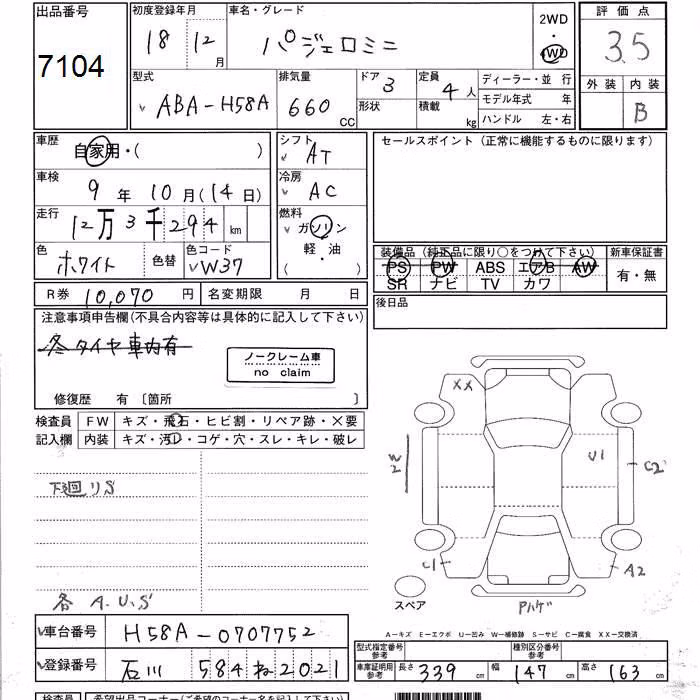 出品番号
7104
初度登録年月
18 12月
車名・グレード
パジェロミニ
2WD
・
4WD
評価点
3.5
外装 内装
B
型式
ABA-H58A
排気量
660 CC
ドア 3
形状
定員
4人
積載 kg
ディーラー・並行
モデル年式 年
ハンドル 左・右
車歴
自家用・( )
車検
9年 10月(14日)
走行
12万3千294 km
色
ホワイト
色替
色コード
W37
シフト
AT
冷房
AC
燃料
ガソリン
軽・油
( )
セールスポイント(正常に機能するものに限ります)
装備品(純正品に限り○をつけて下さい)
PS PW ABS エアB AW
SR ナビ TV カワ
新車保証書
有・無
後日品
R券 10,070円
名変期限 月 日
注意事項申告欄(不具合内容等は具体的に記入して下さい)
冬タイヤ車内有
ノークレーム車
no claim
修復歴 有〔箇所 〕
検査員
記入欄
FW キズ・飛石・ヒビ割・リペア跡・×要
内装 キズ・汚レ・コゲ・穴・スレ・キレ・破レ
下廻りS
各 A.U.S
XX
W2
U1
C2
C1
A2
スペア
Pハゲ
A−キズ E−エクボ U−凹み W−補修跡 S−サビ C−腐食 XX−交換済
車台番号 H58A-0707752
登録番号 石川 584 ね 2021
型式指定番号
参考
種別区分番号
参考
車庫証明用
参考
長さ 339 cm
幅 147 cm
高さ 163 cm
検査員
希望出品コーナー(ご希望のコーナー名を記入して下さい)